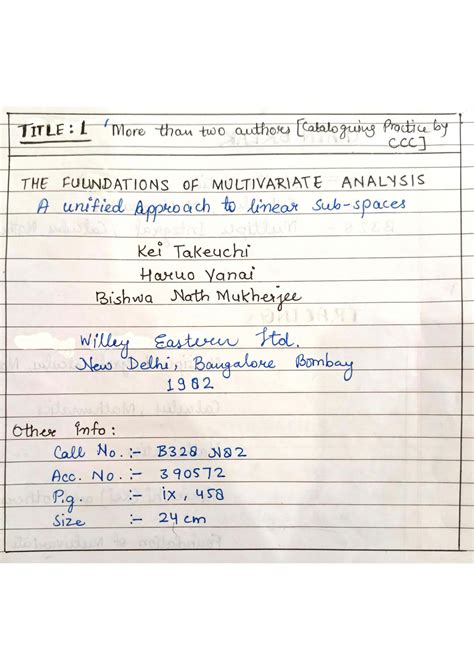 TITLE: 1 'More than two authors [Cataloguing Practice by
CCC]
THE FUUNDATIONS OF MULTIVARIATE ANALYSIS
A unified Approach to linear Sub-spaces
Kei Takeuchi
Haruo Yanai
Bishwa Nath Mukherjee
Willey Eastern Ltd.
New Delhi, Bangalore Bombay
1982
Other Info:
Call No. :- B328 N82
Acc. No. :- 390572
P.g. :- ix, 458
Size :- 24 cm